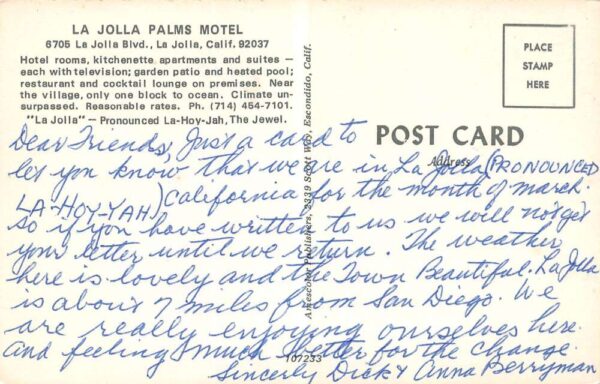 LA JOLLA PALMS MOTEL
6705 La Jolla Blvd., La Jolla, Calif. 92037
Hotel rooms, kitchenette apartments and suites —
each with television; garden patio and heated pool;
restaurant and cocktail lounge on premises. Near
the village, only one block to ocean. Climate un-
surpassed. Reasonable rates. Ph. (714) 454-7101.
"La Jolla" — Pronounced La-Hoy-Jah, The Jewel.
PLACE
STAMP
HERE
POST CARD
Address
Amescolor Publishers, 2339 Scott Way, Escondido, Calif.
Dear Friends, Just a card to
let you know that we are in La Jolla (PRONOUNCED
LA-HOY-YAH) California for the month of march.
So if you have written to us we will not get
your letter until we return. The weather
here is lovely and the Town Beautiful. La Jolla
is about 7 miles from San Diego. We
are really enjoying ourselves here
and feeling much better for the change.
Sincerly Dick & Anna Berryman
107233